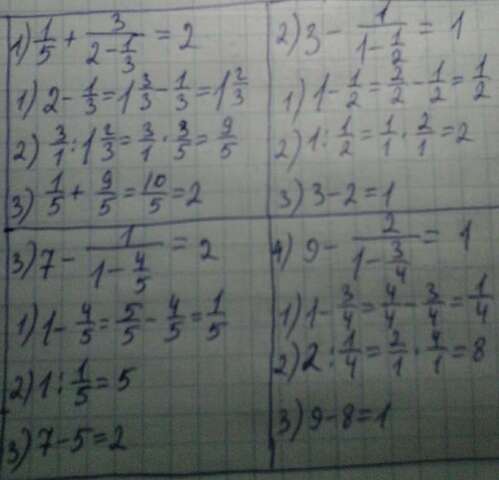 1) 1/5 + 3/(2 - 1/3) = 2
1) 2 - 1/3 = 1 3/3 - 1/3 = 1 2/3
2) 3/1 : 1 2/3 = 3/1 · 3/5 = 9/5
3) 1/5 + 9/5 = 10/5 = 2
2) 3 - 1/(1 - 1/2) = 1
1) 1 - 1/2 = 2/2 - 1/2 = 1/2
2) 1 : 1/2 = 1/1 · 2/1 = 2
3) 3 - 2 = 1
3) 7 - 1/(1 - 4/5) = 2
1) 1 - 4/5 = 5/5 - 4/5 = 1/5
2) 1 : 1/5 = 5
3) 7 - 5 = 2
4) 9 - 2/(1 - 3/4) = 1
1) 1 - 3/4 = 4/4 - 3/4 = 1/4
2) 2 : 1/4 = 2/1 · 4/1 = 8
3) 9 - 8 = 1